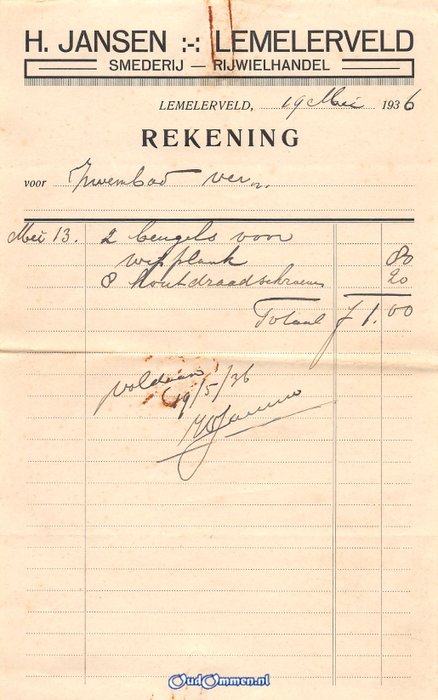 H. JANSEN :-: LEMELERVELD
SMEDERIJ — RIJWIELHANDEL
LEMELERVELD, 19 Mei 1936
REKENING
voor Zwembad ver.
Mei 13. 2 beugels voor
wipplank 80
8 houtdraadschroeven 20
Totaal f 1.00
voldaan
19/5/36
HJansen
OudOmmen.nl